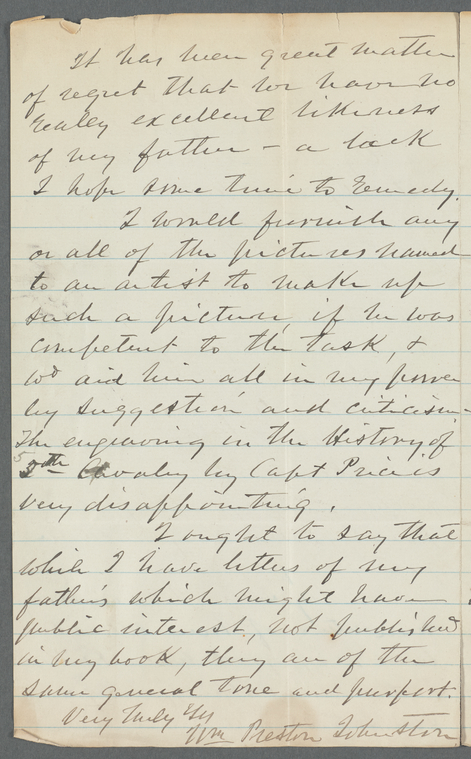 It has been great matter
of regret that we have no
really excellent likeness
of my father - a lack
I hope some time to remedy.
I would furnish any
or all of the pictures named
to an artist to make up
such a picture, if he was
competent to the task, &
wd aid him all in my power
by suggestion and criticism.
The engraving in the History of
5th Cavalry by Capt Price is
very disappointing.
I ought to say that
while I have letters of my
father's which might have
public interest, not published
in my book, they are of the
same general tone and purport.
Very truly Yrs
Wm Preston Johnston